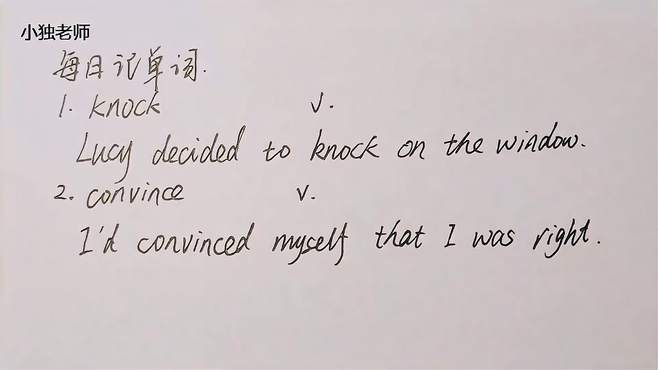 小独老师
每日记单词.
1. knock v.
Lucy decided to knock on the window.
2. convince v.
I'd convinced myself that I was right.